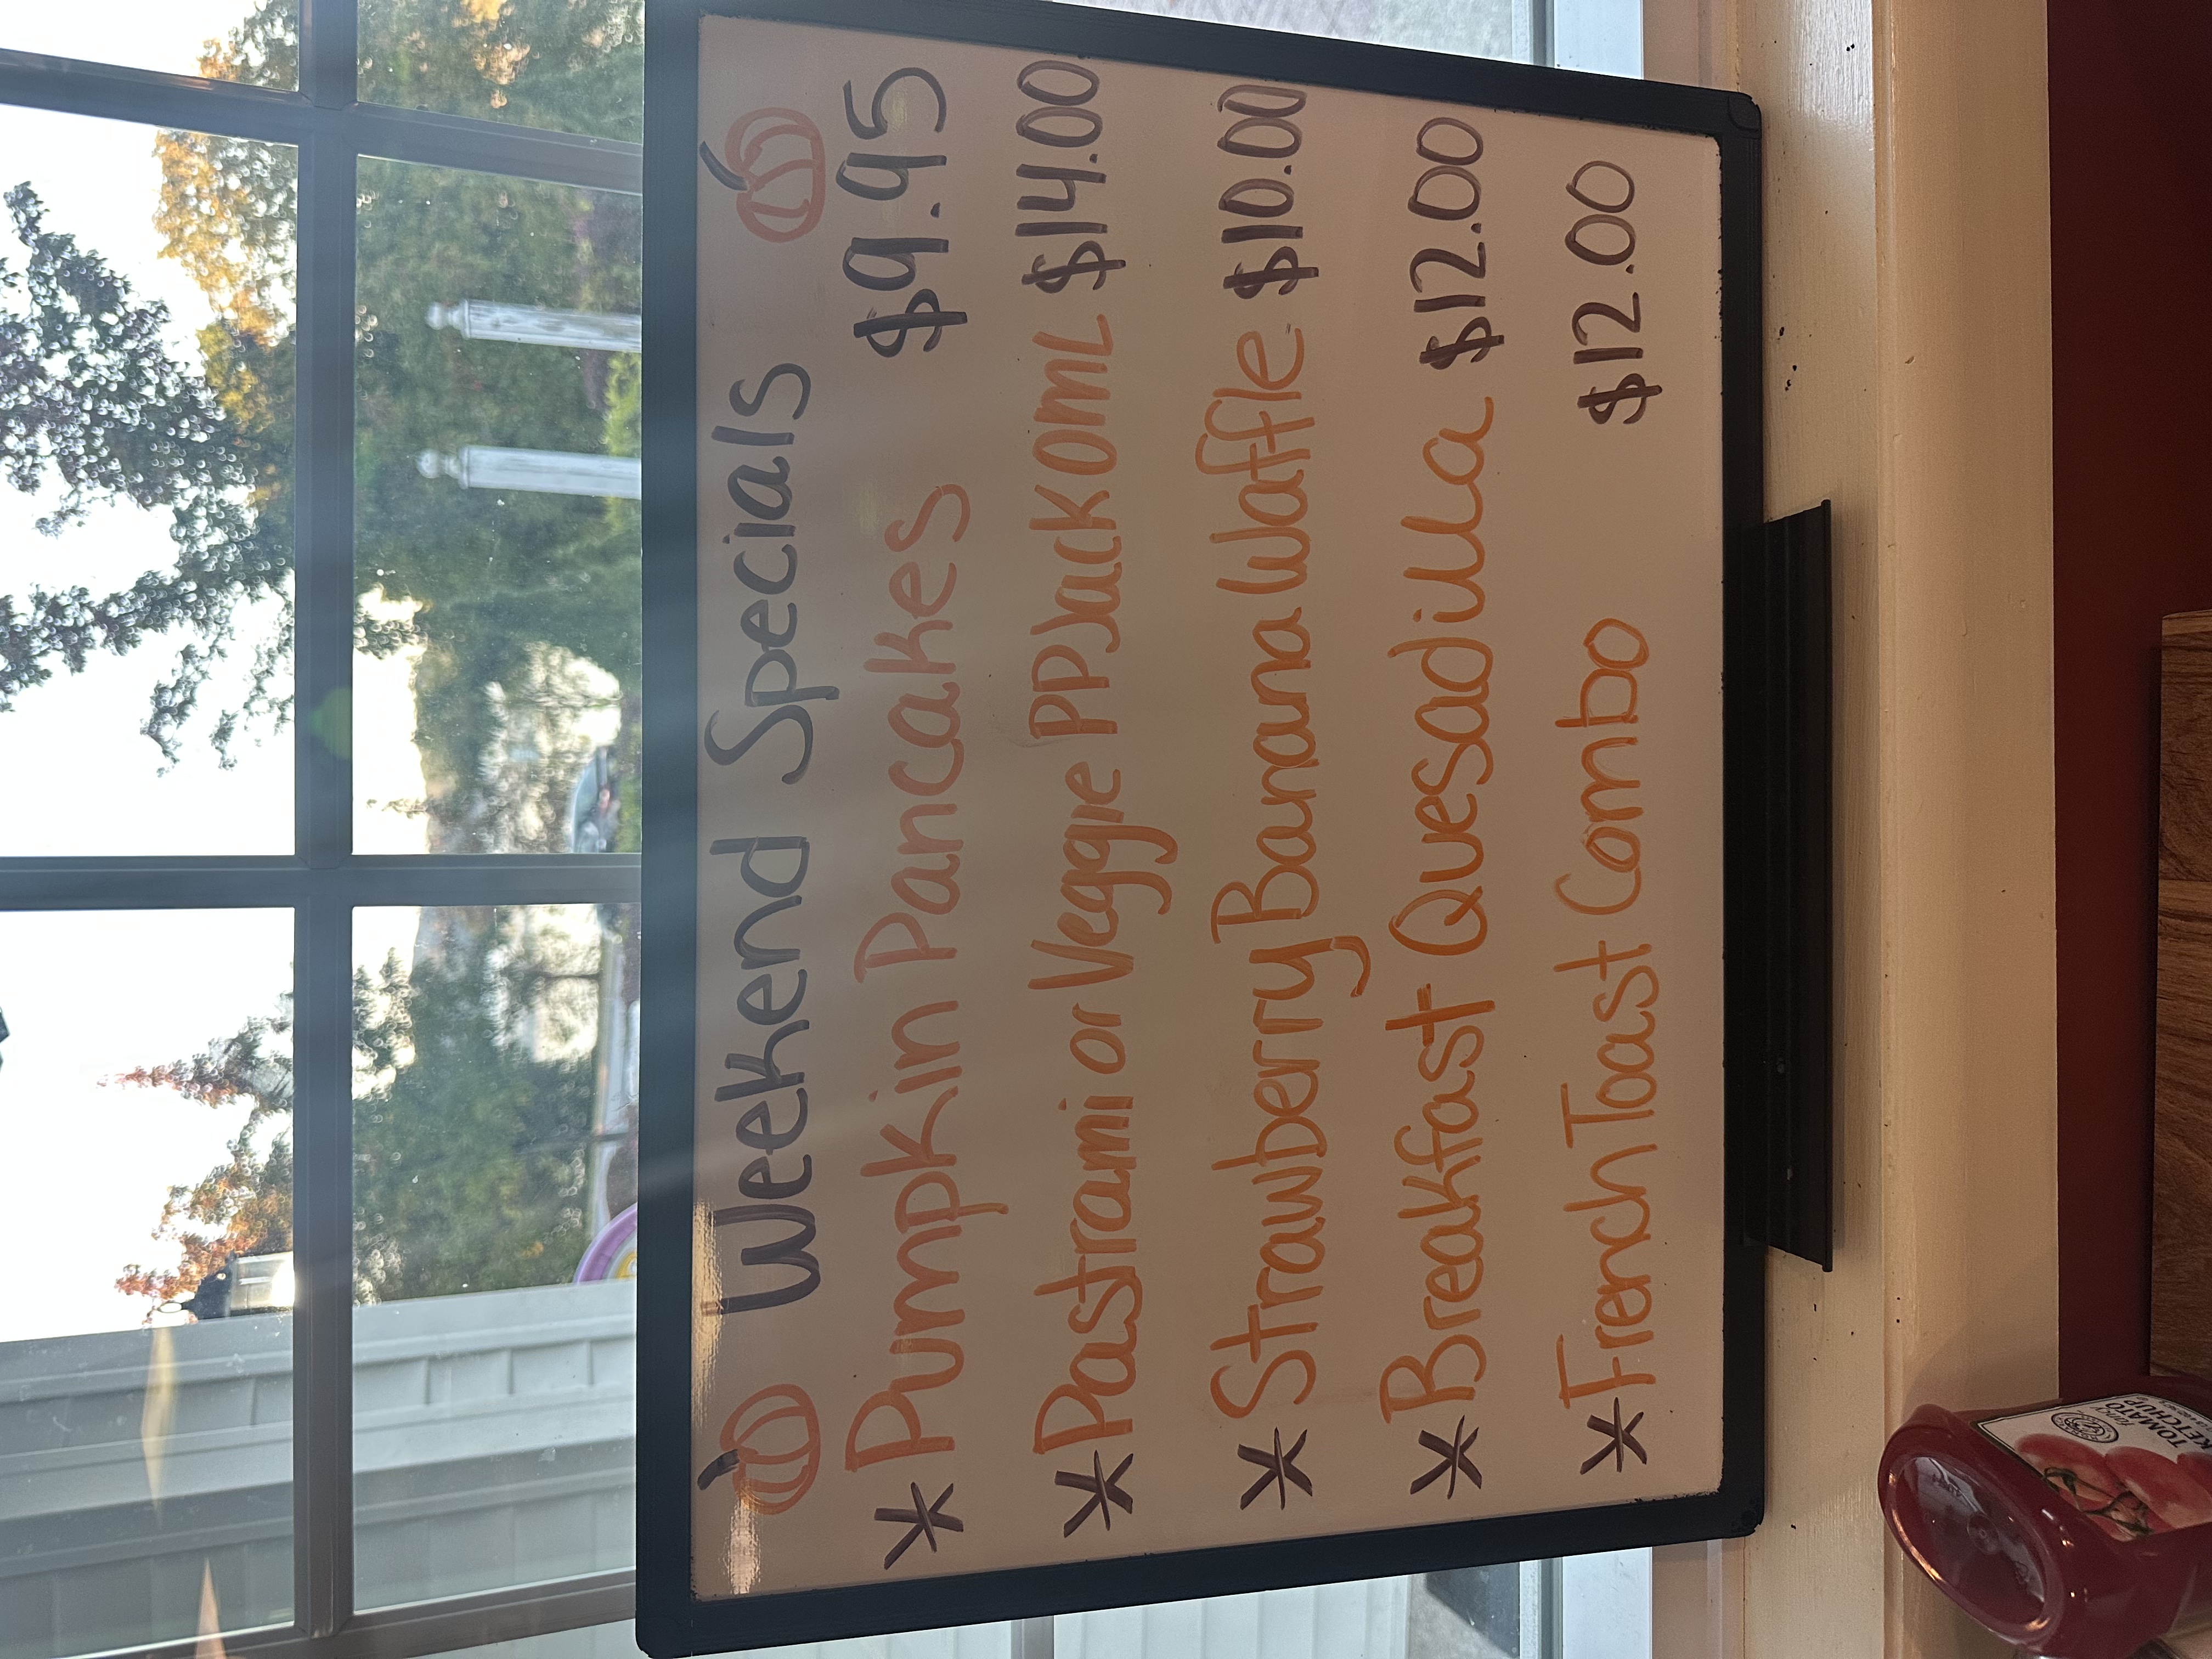 Weekend Specials
* Pumpkin Pancakes $9.95
* Pastrami or Veggie PPJack OML $14.00
* Strawberry Banana Waffle $10.00
* Breakfast Quesadilla $12.00
* French Toast Combo $12.00
fancy
TOMATO
KETCHUP